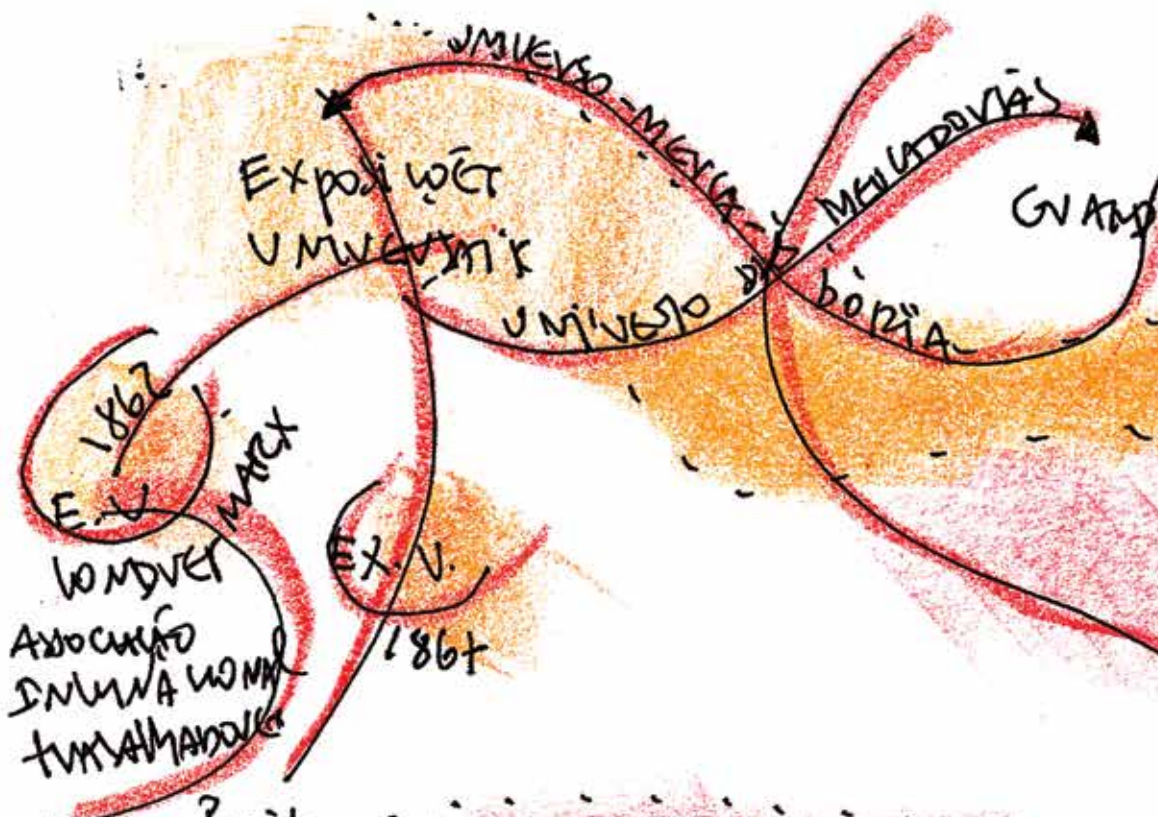 UNIVERSO-MERCA-
MERCADORIAS
EXPOSIÇÕES
UNIVERSAIS
GRAND
UNIVERSO DAS
1862
E.U.
MARX
LONDRES
ASSOCIAÇÃO
INTERNACIONAL
TRABALHADORES
EX. U.
1867